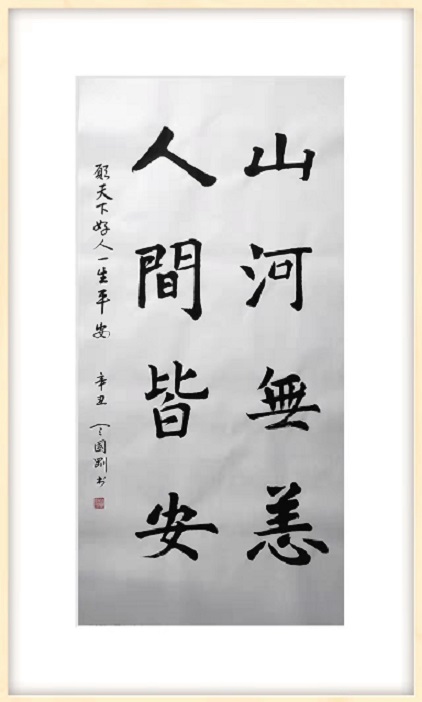 山河無恙
人間皆安
願天下好人一生平安
辛丑 國剛书